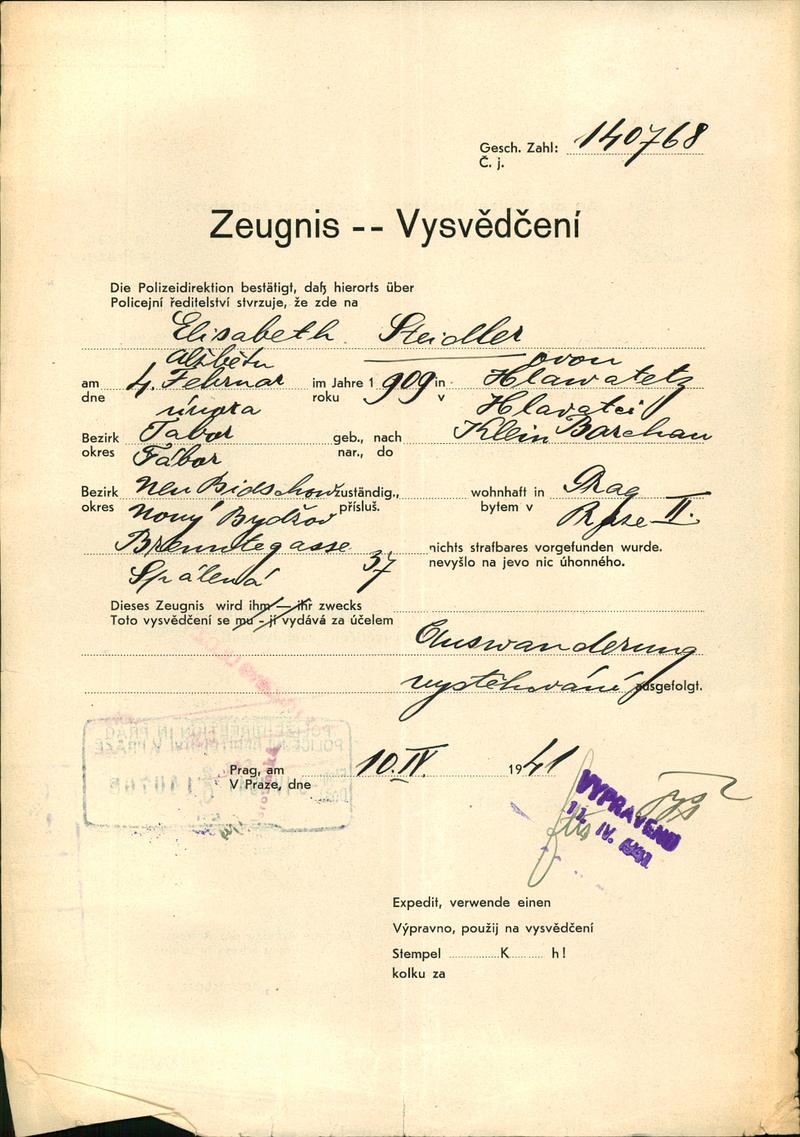 Gesch. Zahl: 140768
Č. j.
Zeugnis -- Vysvědčení
Die Polizeidirektion bestätigt, daß hierorts über
Policejní ředitelství stvrzuje, že zde na
Elisabeth Steidler
Alžbětu ovou
am 4. Februar im Jahre 1909 in Hlawatetz
dne února roku v Hlavatci
Bezirk Tabor geb., nach Klein Barchau
okres Tábor nar., do
Bezirk Neu Bidschow zuständig., wohnhaft in Prag
okres Nový Bydžov přísluš. bytem v Praze II.
Brenntegasse 37 nichts strafbares vorgefunden wurde.
Spálená nevyšlo na jevo nic úhonného.
Dieses Zeugnis wird ihm — ihr zwecks
Toto vysvědčení se mu - jí vydává za účelem
Auswanderung
vystěhování ausgefolgt.
POLIZEIDIREKTION IN PRAG
POLICEJNÍ ŘEDITELSTVÍ V PRAZE
Prag, am 10. IV. 1941
V Praze, dne
VYPRAVENO
11. IV. 1941
Expedit, verwende einen
Výpravno, použij na vysvědčení
Stempel K h!
kolku za